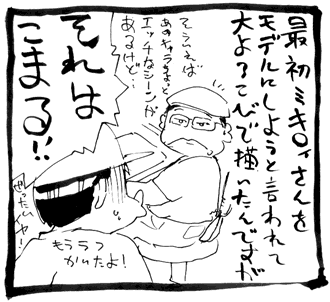 最初ミキ○ィさんを
モデルにしようと言われて
大よろこびで描いたんですが
そういえば
あのキャラちょっと
エッチなシーンが
あるけど…
それは
こまる!!
ぜったいヤー!
もうラフ
かいたよ!